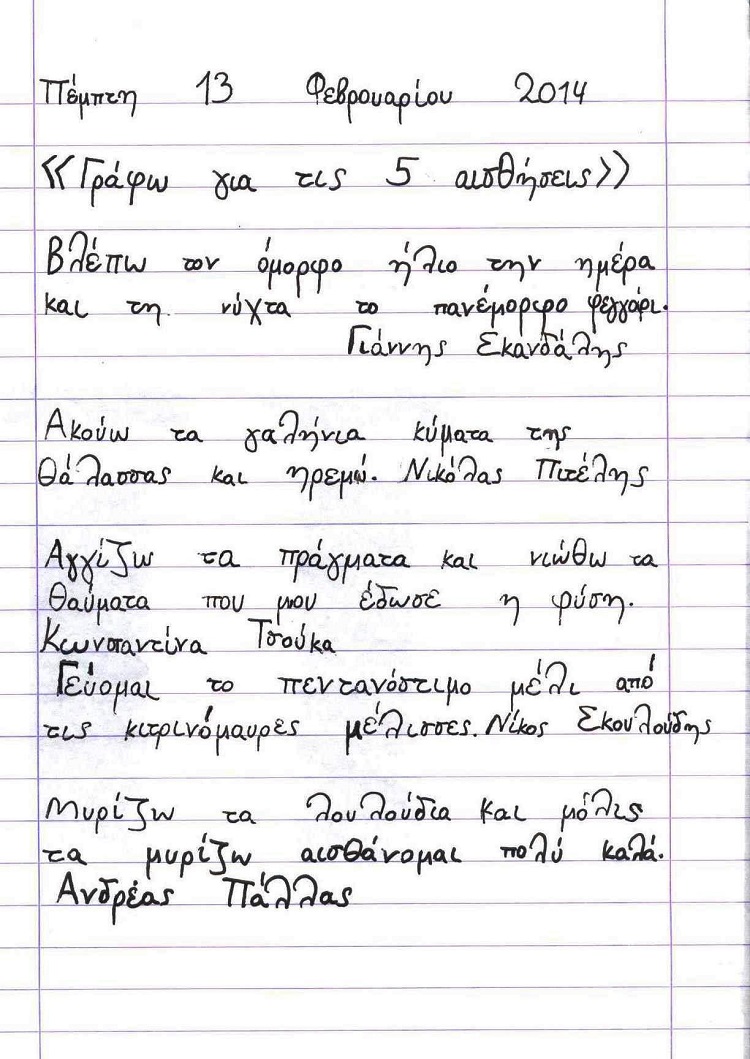 Πέμπτη 13 Φεβρουαρίου 2014
«Γράφω για τις 5 αισθήσεις»
Βλέπω τον όμορφο ήλιο την ημέρα
και τη νύχτα το πανέμορφο φεγγάρι.
Γιάννης Σκανδάλης
Ακούω τα γαλήνια κύματα της
θάλασσας και ηρεμώ. Νικόλας Πιτέλης
Αγγίζω τα πράγματα και νιώθω τα
θαύματα που μου έδωσε η φύση.
Κωνσταντίνα Τσούκα
Γεύομαι το πεντανόστιμο μέλι από
τις κιτρινόμαυρες μέλισσες. Νίκος Σκουλούδης
Μυρίζω τα λουλούδια και μόλις
τα μυρίζω αισθάνομαι πολύ καλά.
Ανδρέας Πάλλας